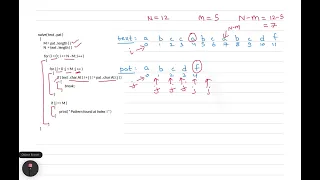 N=12 M=5 N-M = 12-5
= 7
naive( text, pat )
M = pat.length()
N = text.length()
for (i=0; i<=N-M; i++)
for (j=0; j<M; j++)
if( text.char At( i+j ) != pat.char At( j ) )
break;
if( j == M )
print " Pattern found at index i "
N-M
text: a b c d a b c
0 1 2 3 4 5 6 7 8 9 10 11
i →
pat: a b c d f
0 1 2 3 4
j → j j j j j